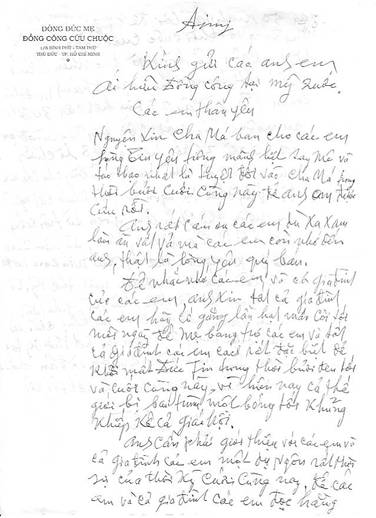 DÒNG ĐỨC MẸ
ĐỒNG CÔNG CỨU CHUỘC
BÌNH PHÚ - TAM PHÚ
THỦ ĐỨC - TP. HỒ CHÍ MINH
Kính gửi các anh em
Ái hữu Đồng công tại Mỹ quốc.
Các em thân yêu
Nguyện xin Cha Má ban cho các em
lòng tin yêu sống mãnh liệt tay Mẹ và
Cha Má
thời buổi cuối cùng này để anh em
cứu rỗi.
Anh rất cám ơn các em dù xa xăm
làm ăn vất vả mà các em còn nhớ đến
anh, thật là lòng yêu quí
các em và cả gia đình
các em, anh xin tất cả gia đình
các em hãy cố gắng lần hạt
mỗi ngày để Mẹ nâng trợ các em và tất
cả gia đình các em cách rất đặc biệt để
khỏi mất Đức Tin trong thời buổi đen tối
và cuối cùng này, vì hiện nay cả thế
giới bị bao trùm một bóng tối khủng
khiếp kể cả giáo hội.
Anh cần phải giới thiệu với các em và
cả gia đình các em một rất thời
sự của thời kỳ cuối cùng này, để các
em và cả gia đình các em đọc hằng